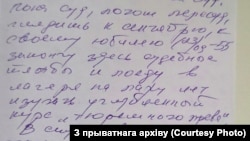 пока суд, потом пересуд,
глядишь к сентябрю, к
своему юбилею
закончу здесь судебное
и поеду в
лагеря на пару лет
изучать углубленный
курс „Тюремного
В
З прыватнага архіву (Courtesy Photo)